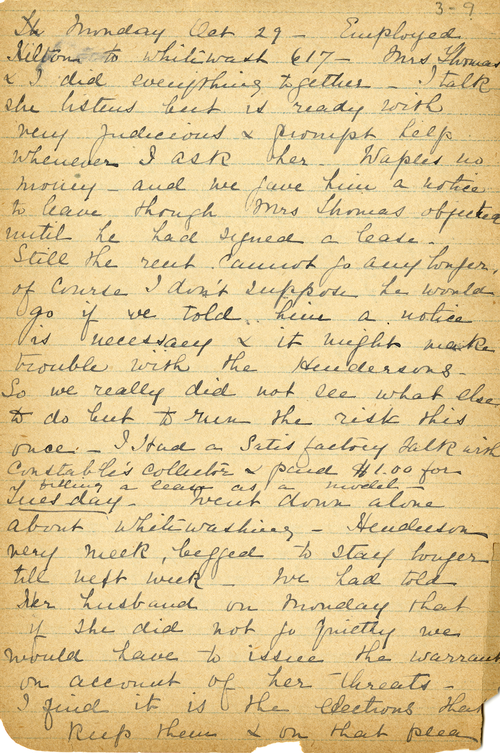 3-9
Monday Oct 29 - Employed
Hilton to whitewash 617 - Mrs Thomas
& I did everything together - I talk
she listens but is ready with
very judicious & prompt help
whenever I ask her - Waples no
money - and we gave him a notice
to leave though Mrs Thomas objected
until he had signed a lease -
Still the rent cannot go any longer,
of course I don't suppose he would
go if we told him a notice
is necessary & it might make
trouble with the Hendersons -
So we really did not see what else
to do but to run the risk this
once - I Had a Satisfactory talk with
Constable's collector & paid $1.00 for
filling a lease as a model -
Tuesday - Went down alone
about whitewashing - Henderson
very meek, begged to stay longer
till next week - We had told
Her husband on Monday that
if she did not go quietly we
would have to issue the warrant
on account of her threats -
I find it is the elections that
keep them & on that plea